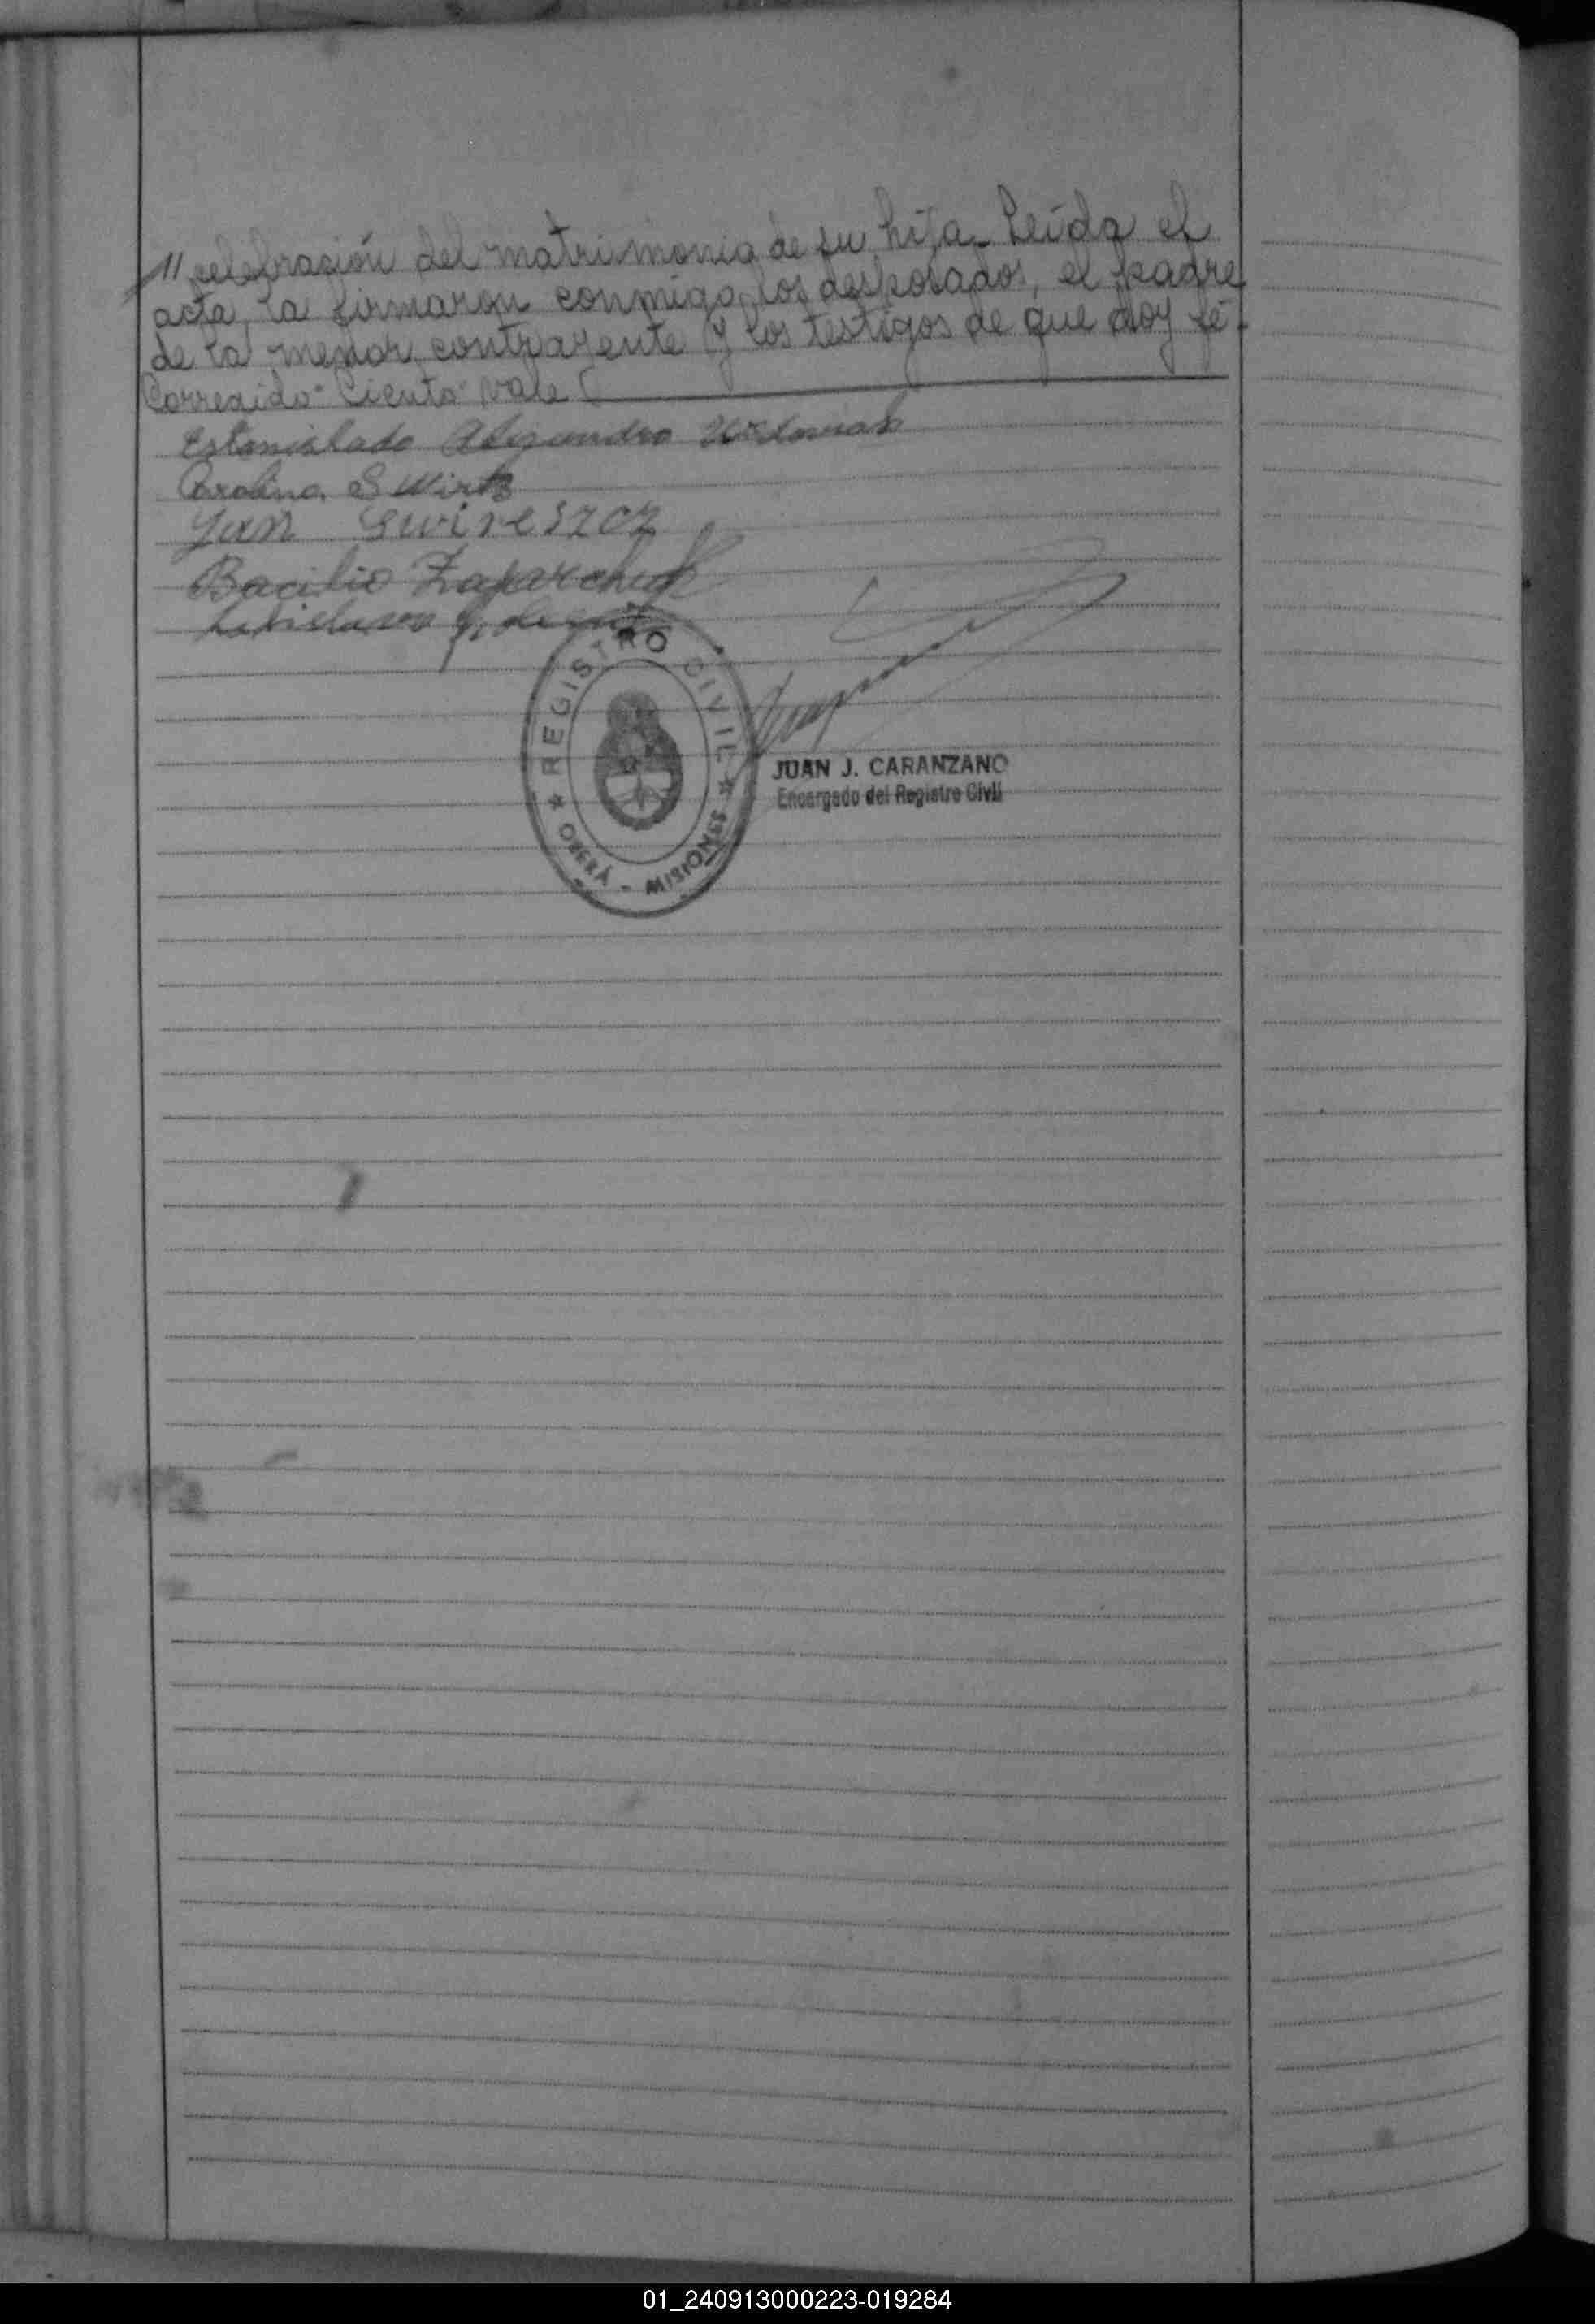 // celebración del matrimonio de su hija. Leída el
acta, la firmaron conmigo, los desposados, el padre
de la menor contrayente y los testigos de que doy fé.
Corregido "Ciento" Vale
Estanislado Alejandro
Carolina S
Jan Swireszcz
Bacilio Zaparchuk
Ladislavo
REGISTRO CIVIL
OBERÁ - MISIONES
JUAN J. CARANZANO
Encargado del Registro Civil
01_240913000223-019284